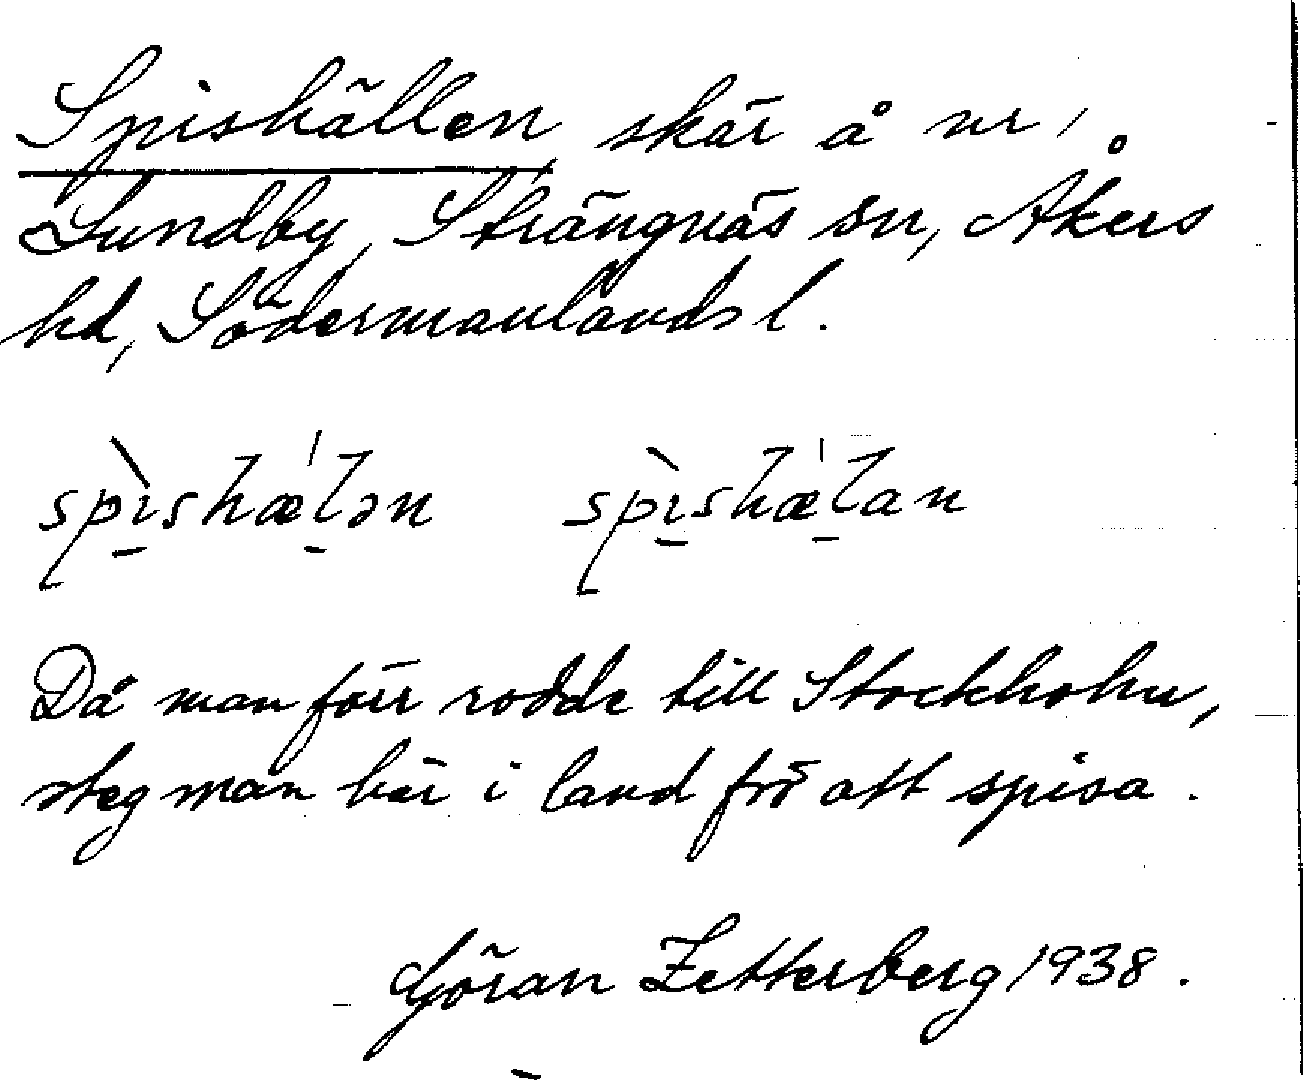 Spishällen, skär å nr 1
Lundby, Strängnäs sn, Åkers
hd, Södermanlands l.
spìshæ̍lən spìshæ̍lan
Då man förr rodde till Stockholm,
steg man här i land för att spisa.
Göran Zetterberg 1938.